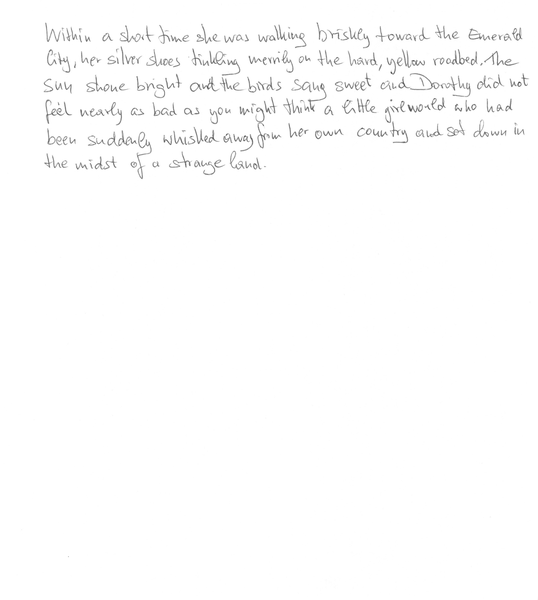 Within a short time she was walking briskly toward the Emerald
City, her silver shoes tinkling merrily on the hard, yellow roadbed. The
sun shone bright and the birds sang sweet and Dorothy did not
feel nearly as bad as you might think a little girl world who had
been suddenly whisked away from her own country and set down in
the midst of a strange land.